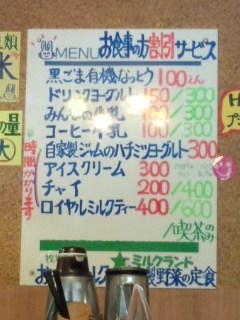 MENU お食事の方割引サービス
黒ごま有機なっとう 100えん
ドリンクヨーグルト 150/300
みんなの牛乳 100/300
コーヒー牛乳 100/300
自家製ジャムのハチミツヨーグルト 300
アイスクリーム 300
チャイ 200/400
ロイヤルミルクティー 400/600
/喫茶のみ
★ミルクランド
製野菜の定食
時間かかります
類
米
の量
大